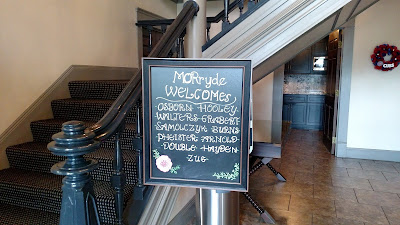 MORryde
WELCOMES,
OSBORN HOOLEY
WALTERS GRABERT
SAMOLCZYK BURNS
PHEISTER ARNOLD
DOUBLE HAYDEN
ZUG
CUBS